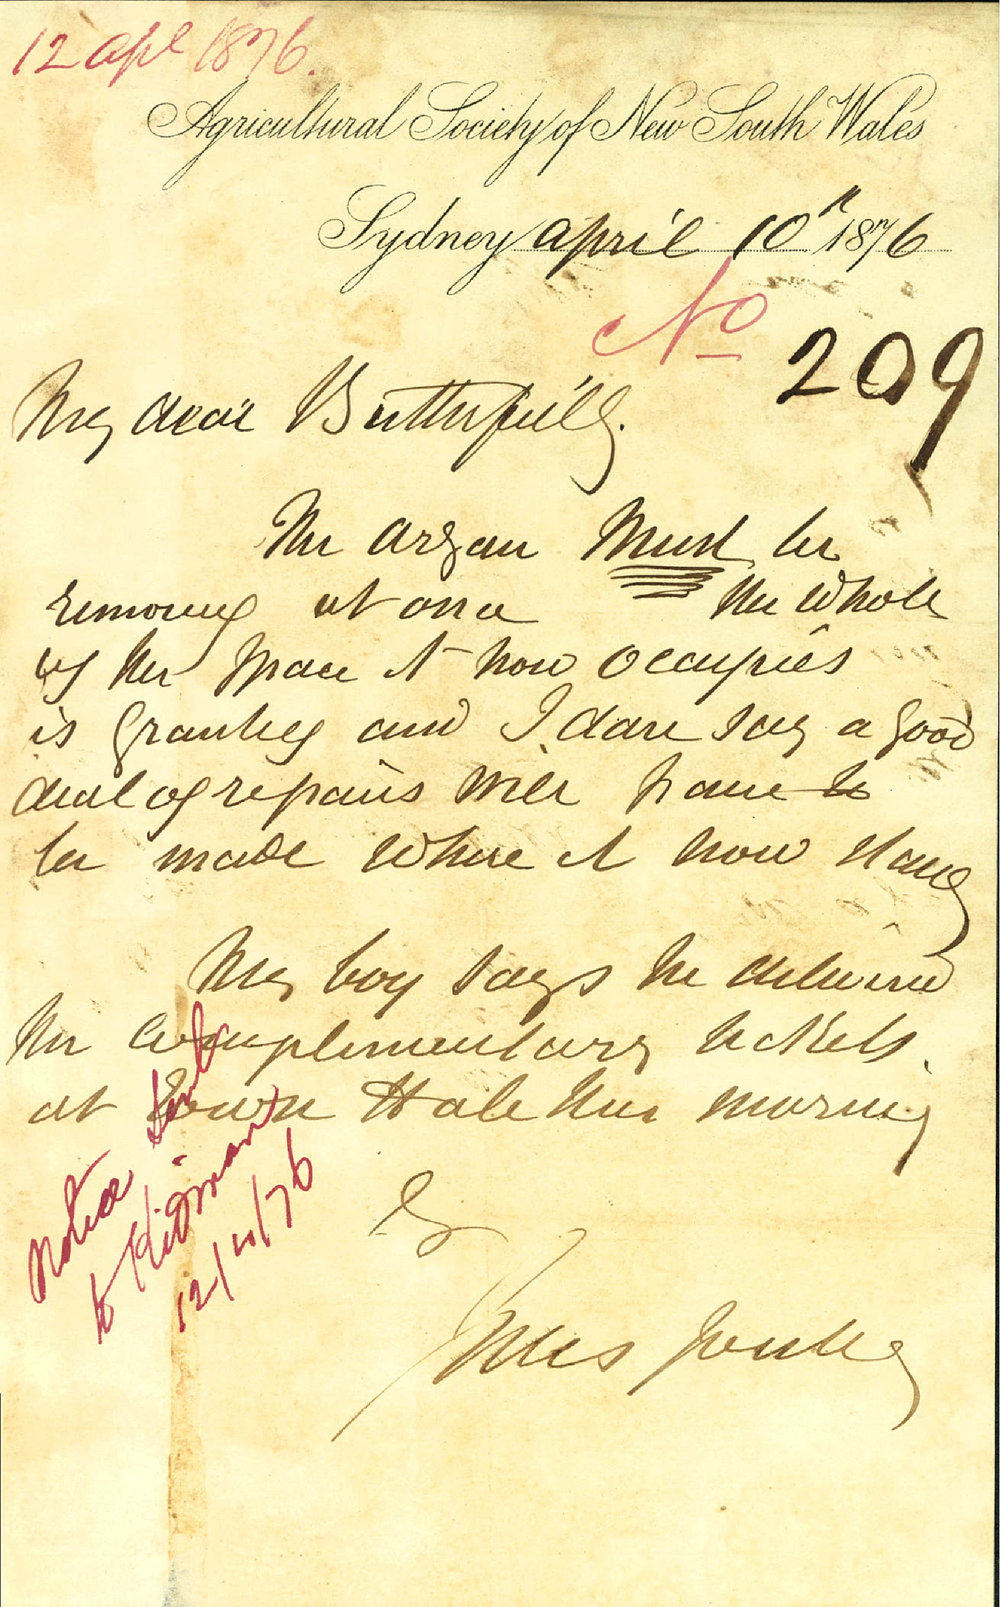 12 Apl 1876.
Agricultural Society of New South Wales
Sydney April 10th 1876
No 209
My dear Butterfield.
The organ Must be
removed at once the whole
of the space it now occupies
is granted and I dare say a good
deal of repairs will have to
be made where it now stands
My boy says he delivered
the complimentary tickets.
at Town Hall this morning
Jules Joubert
Notice sent
to
12/4/76